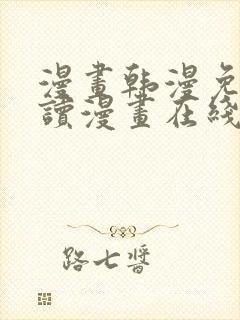 漫畫韩漫免
讀漫畫在綫
路七醬